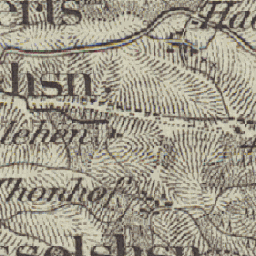 erts
Ha
hsn
lehen
Thonhof
sselshsn